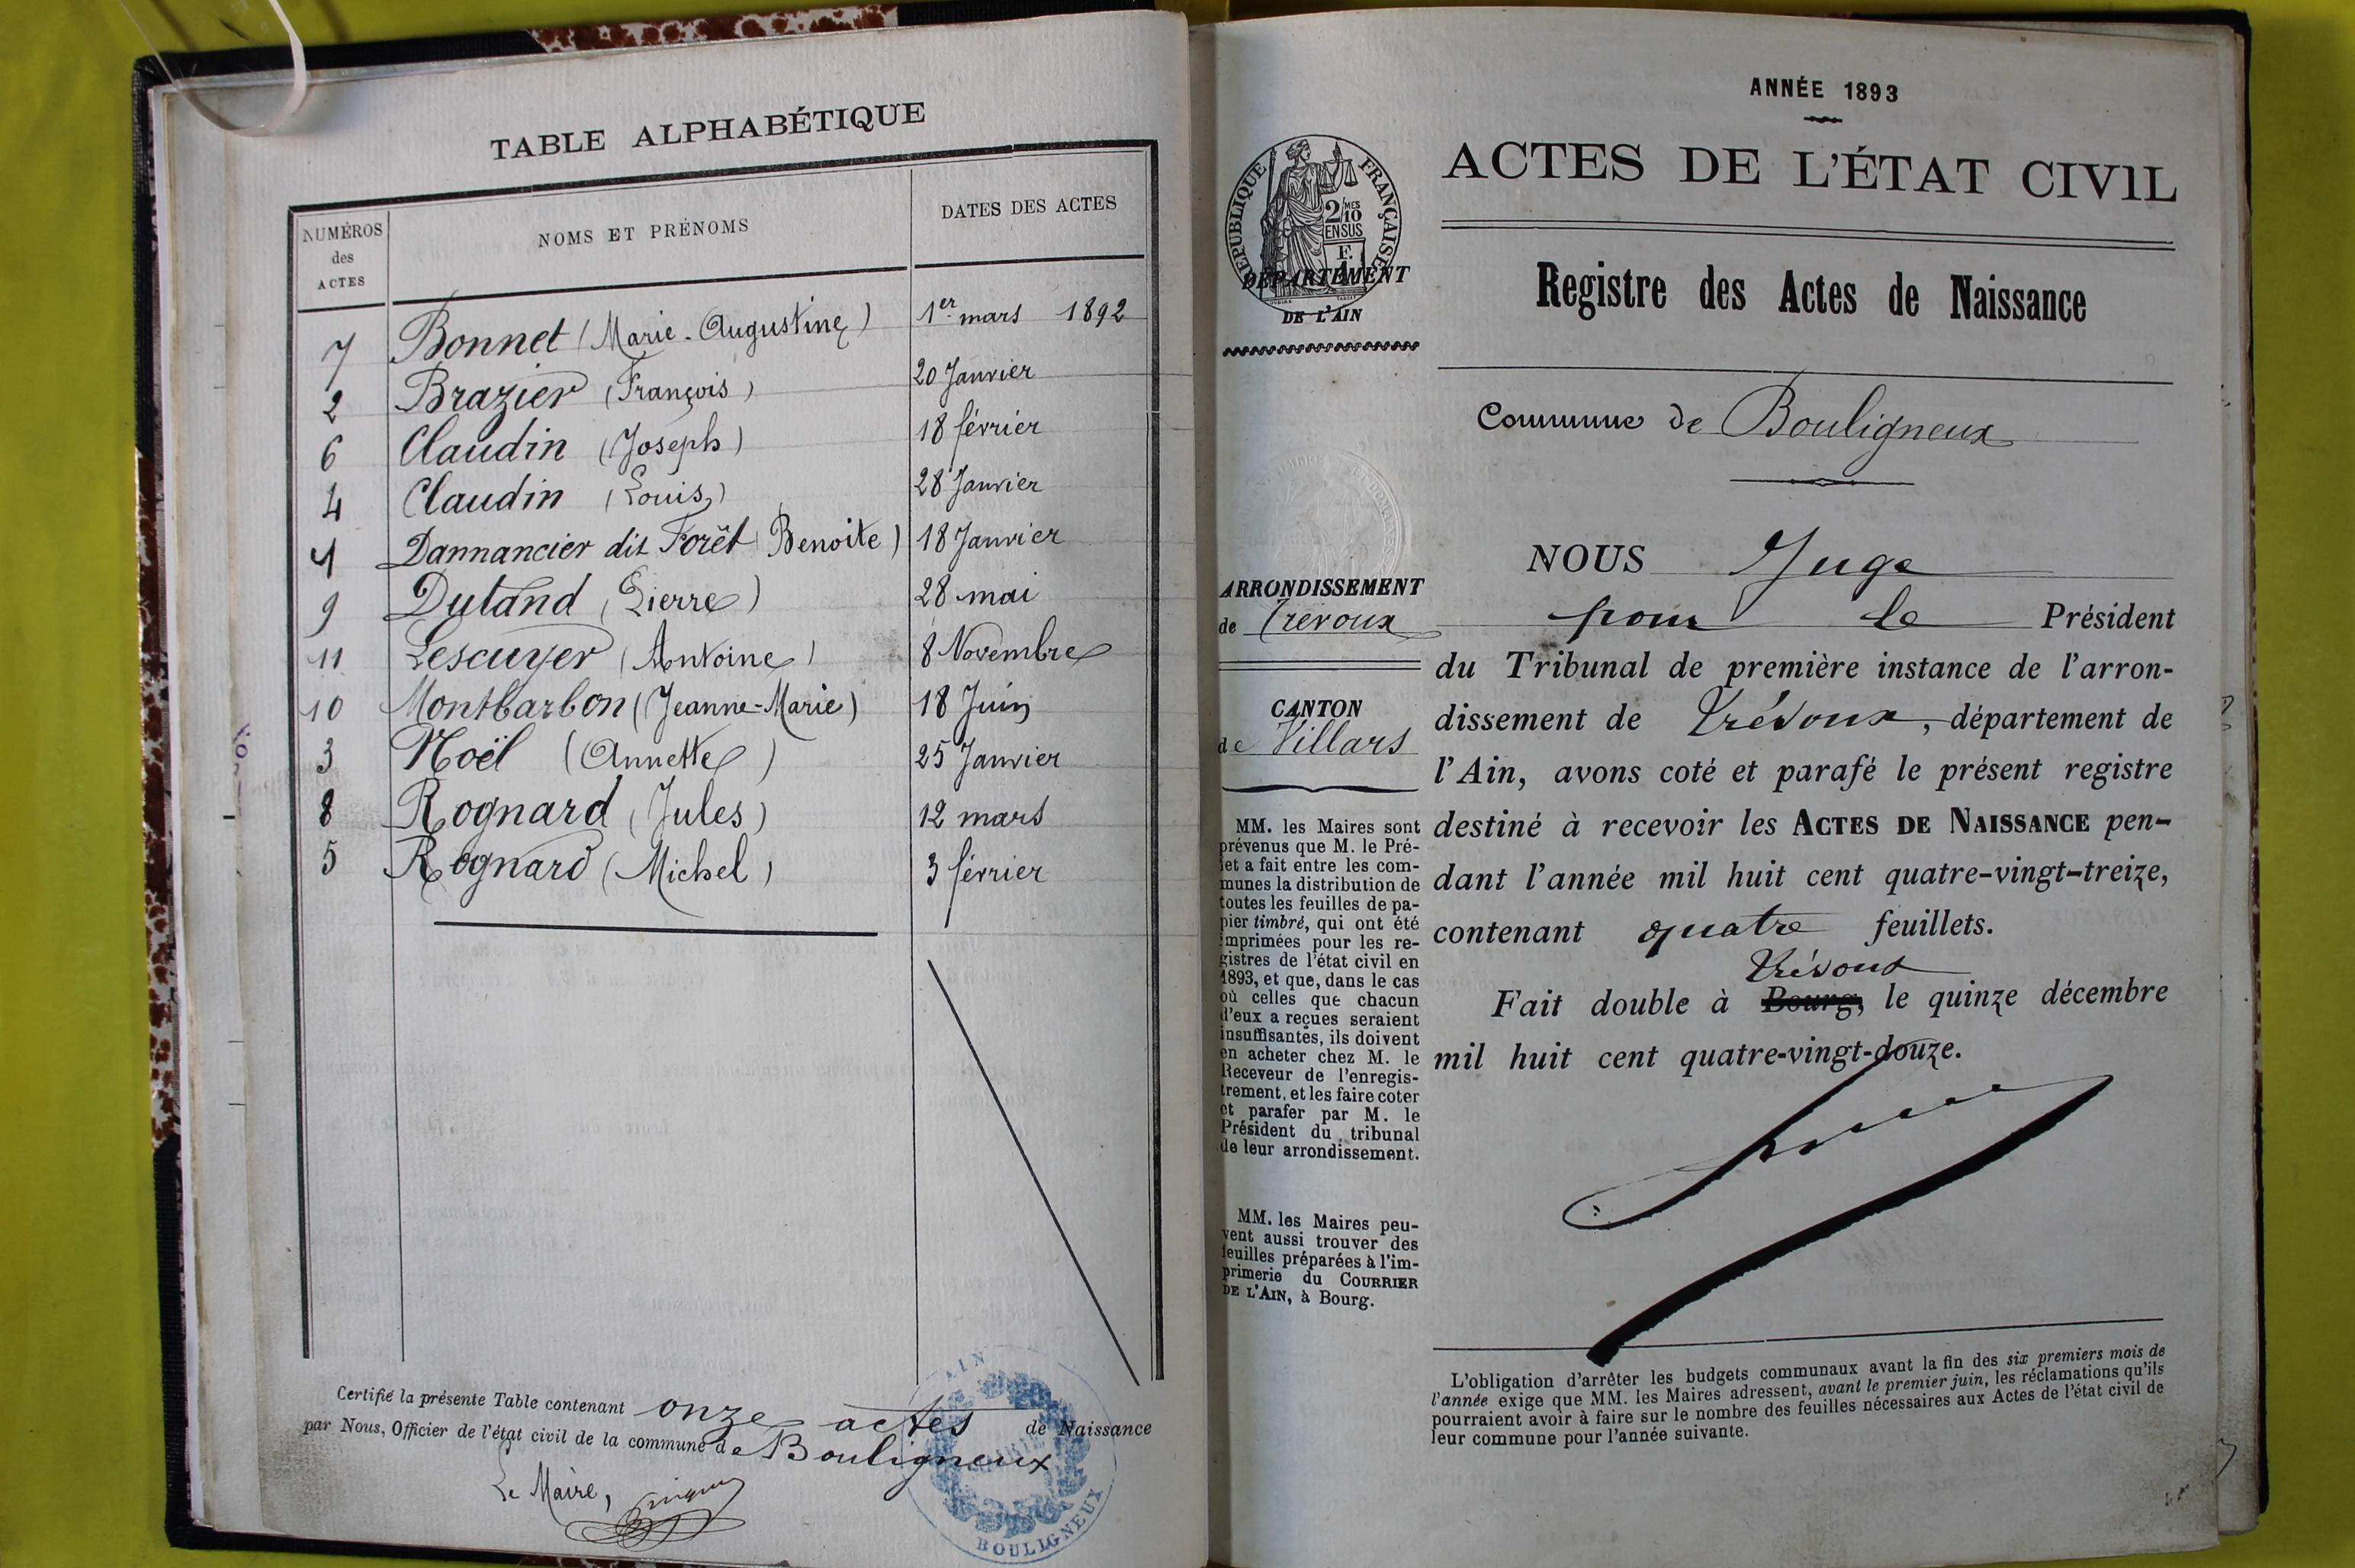 TABLE ALPHABÉTIQUE
NUMÉROS des ACTES NOMS ET PRÉNOMS DATES DES ACTES
7 Bonnet (Marie-Augustine) 1er mars 1892
2 Brazier (François) 20 Janvier
6 Claudin (Joseph) 18 février
4 Claudin (Louis) 28 Janvier
1 Dannancier dit Forêt (Benoite) 18 Janvier
9 Dutand (Pierre) 28 mai
11 Lescuyer (Antoine) 8 Novembre
10 Montbarbon (Jeanne-Marie) 18 Juin
3 Noël (Annette) 25 Janvier
8 Rognard (Jules) 12 mars
5 Rognard (Michel) 3 février
Certifié la présente Table contenant onze actes de Naissance
par Nous, Officier de l'état civil de la commune de Bouligneux
Le Maire,
AIN
MAIRIE
BOULIGNEUX
ANNÉE 1893
ACTES DE L'ÉTAT CIVIL
RÉPUBLIQUE FRANÇAISE
2/10 MES
EN SUS
F.
DÉPARTEMENT
DE L'AIN
Registre des Actes de Naissance
Commune de Bouligneux
ARRONDISSEMENT
de Trévoux
CANTON
de Villars
MM. les Maires sont
prévenus que M. le Pré-
fet a fait entre les com-
munes la distribution de
toutes les feuilles de pa-
pier timbré, qui ont été
imprimées pour les re-
gistres de l'état civil en
1893, et que, dans le cas
où celles que chacun
d'eux a reçues seraient
insuffisantes, ils doivent
en acheter chez M. le
Receveur de l'enregis-
trement, et les faire coter
et parafer par M. le
Président du tribunal
de leur arrondissement.
MM. les Maires peu-
vent aussi trouver des
feuilles préparées à l'im-
primerie du COURRIER
DE L'AIN, à Bourg.
NOUS Juge
pour le Président
du Tribunal de première instance de l'arron-
dissement de Trévoux, département de
l'Ain, avons coté et parafé le présent registre
destiné à recevoir les ACTES DE NAISSANCE pen-
dant l'année mil huit cent quatre-vingt-treize,
contenant quatre feuillets.
Trévoux
Fait double à Bourg, le quinze décembre
mil huit cent quatre-vingt-douze.
L'obligation d'arrêter les budgets communaux avant la fin des six premiers mois de
l'année exige que MM. les Maires adressent, avant le premier juin, les réclamations qu'ils
pourraient avoir à faire sur le nombre des feuilles nécessaires aux Actes de l'état civil de
leur commune pour l'année suivante.